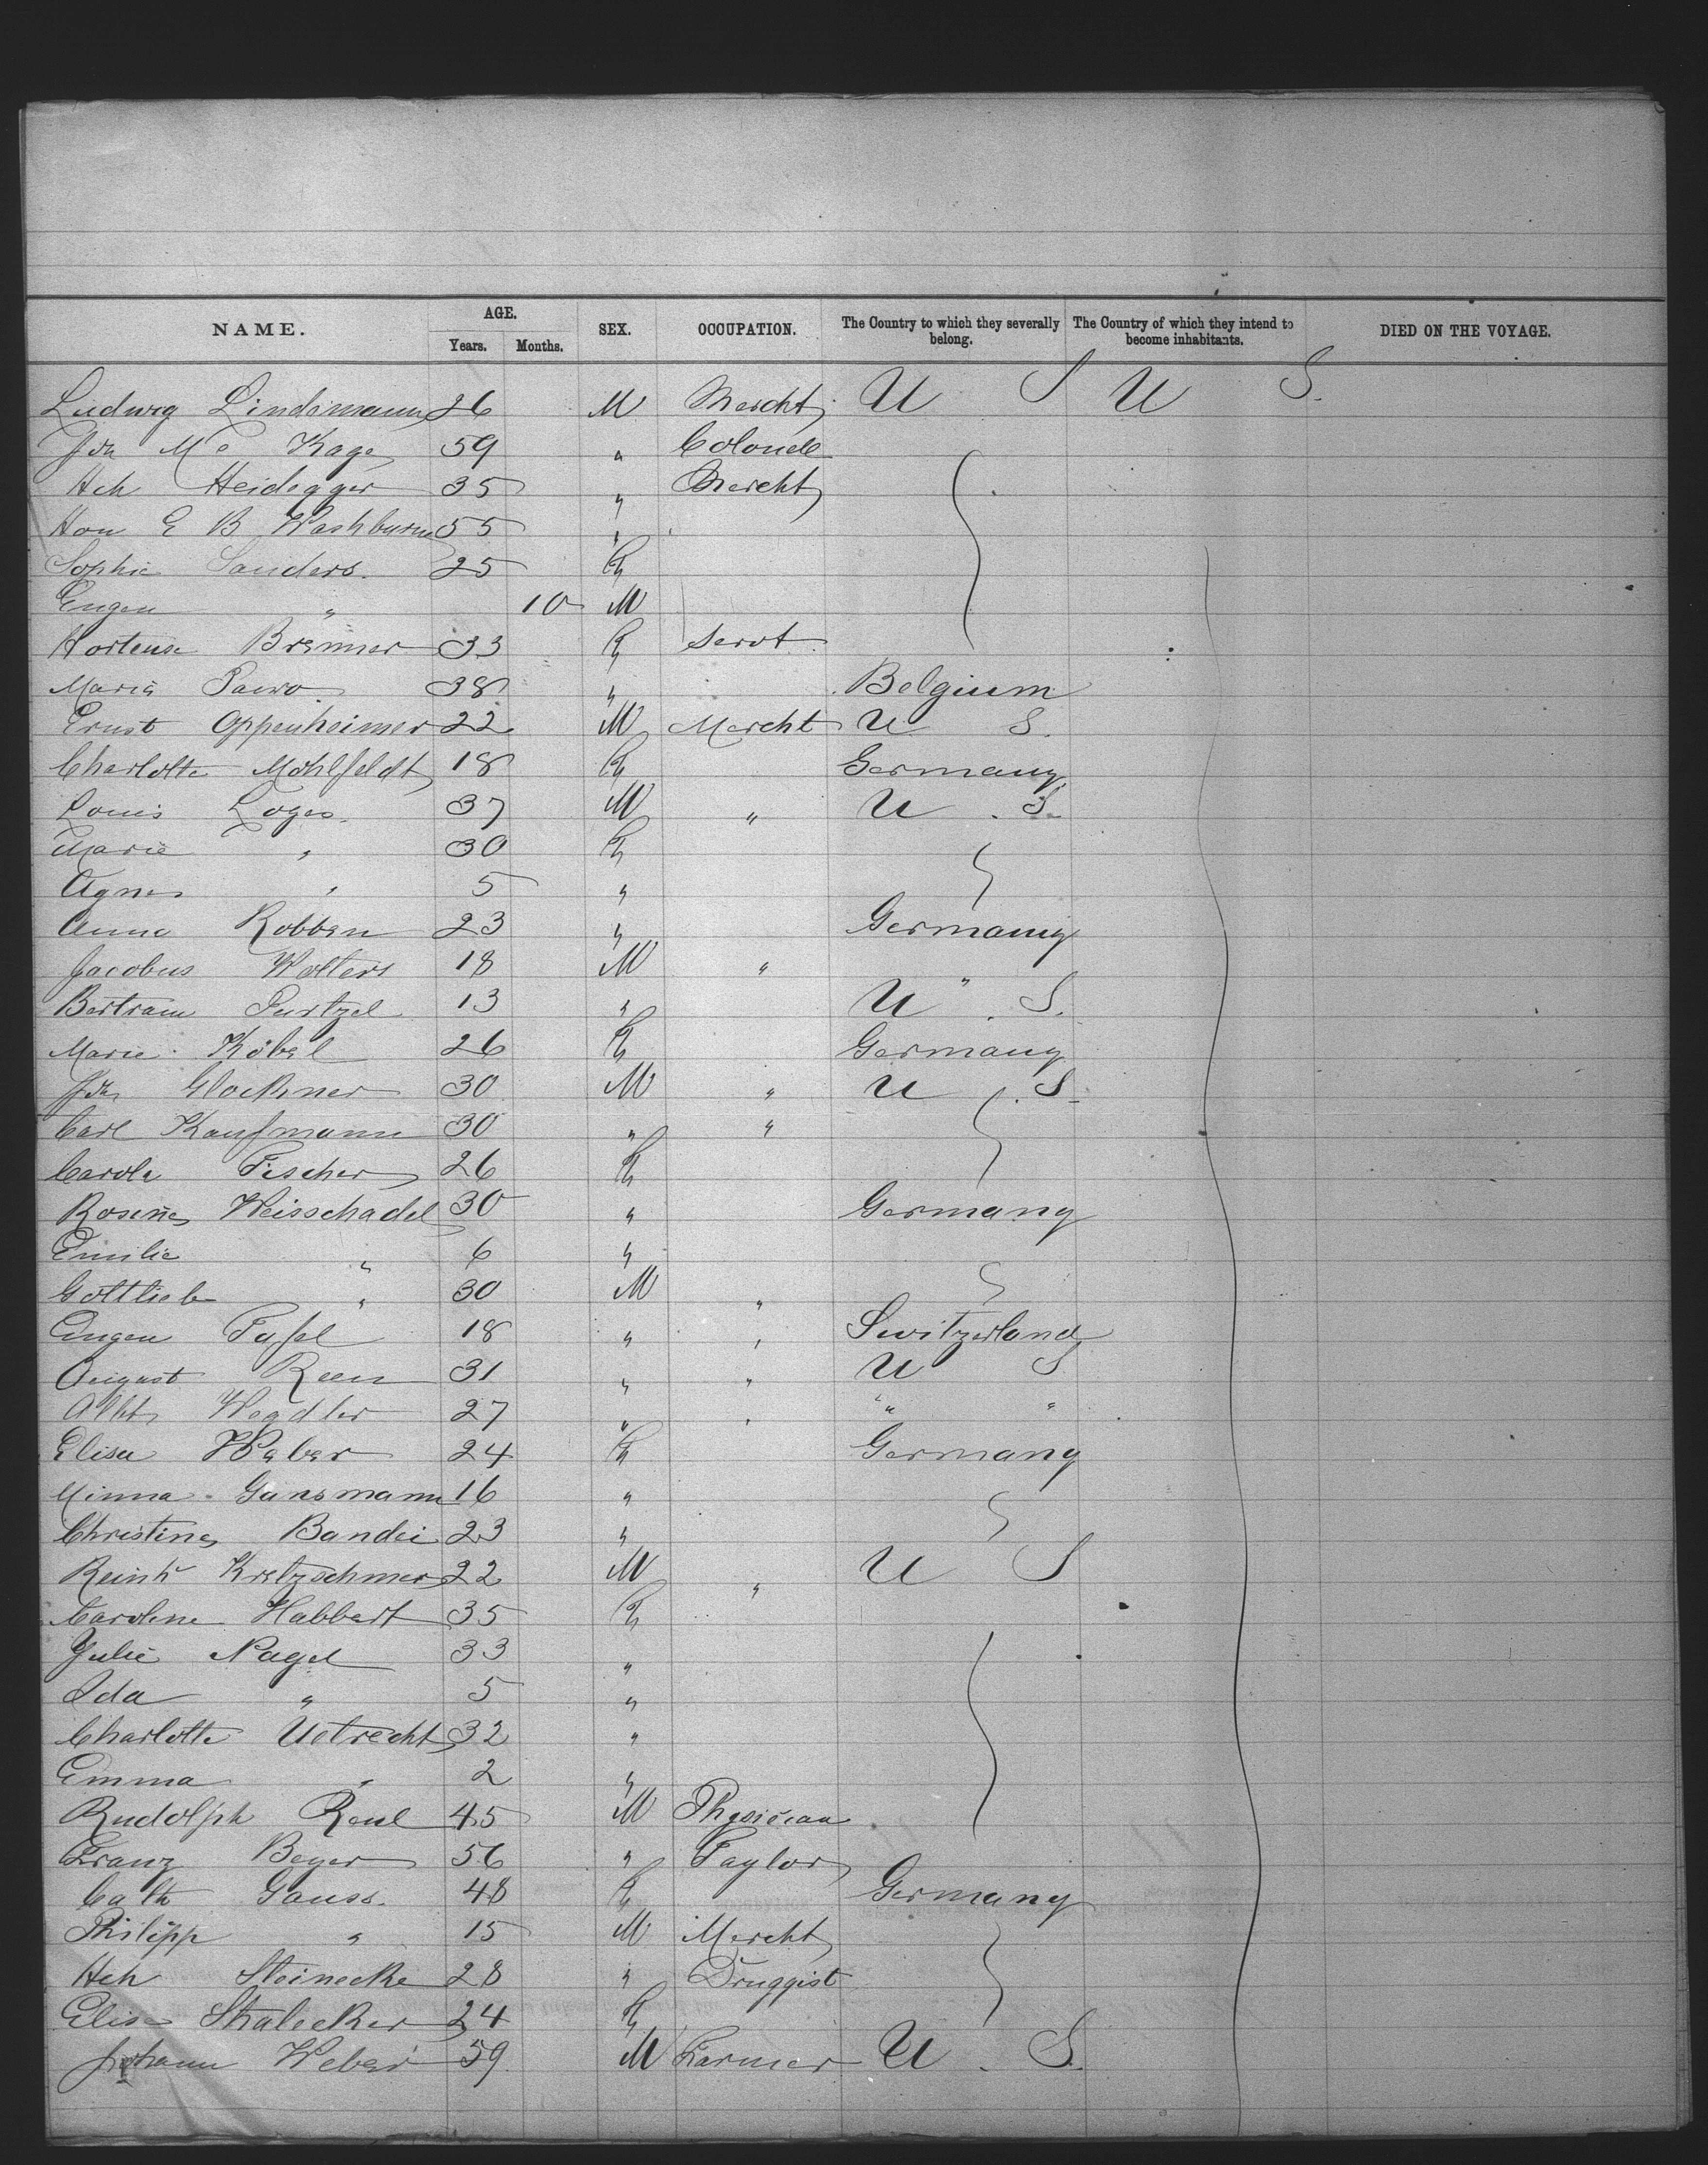 NAME. AGE. SEX. OCCUPATION. The Country to which they severally belong. The Country of which they intend to become inhabitants. DIED ON THE VOYAGE.
Years. Months.
Ludwig Lindemann 26 M Mercht U S U S.
Jn Mc Kage 59 " Colonell
Hch Heidegger 35 " Mercht
Hon E B Washburne 55 "
Sophie Sanders. 25 F
Eugen " 10 M
Hortense Bremer 33 F Servt.
Maria 38 " Belgium
Ernst Oppenheimer 22 M Mercht U S.
Charlotte Mohlfeldt 18 F Germany
Louis Loges 37 M " U . S.
Marie " 30 F
Agnes " 5 "
Anna Robben 23 " Germany
Jacobus Wolters 18 M " "
Bertram Purtzel 13 " U . S.
Marie Köbel 26 F Germany
Jn Glockner 30 M " U . S.
Carl Kaufmann 30 " "
Carola Fischer 26 F
Rosine Weisschadel 30 " Germany
Emilie " 6 "
Gottlieb " 30 M "
Eugen 18 " " Switzerland
August 31 " " U S
Albt 27 " " " "
Elise Weber 24 F Germany
Minna Gansmann 16 "
Christine Bandei 23 "
Reinh Kretzschmer 22 M " U S
Caroline Habbert 35 F
Julie Nagel 33 "
Ida " 5 "
Charlotte Uetrecht 32 "
Emma " 2 "
Rudolph 45 M Physician
Franz Beyer 56 " Taylor
Cath Gauss. 48 F Germany
Philipp " 15 M Mercht
Hch Steinecke 28 " Druggist
Elise Stralecker 24 F
Johann Weber 59 M Farmer U . S.